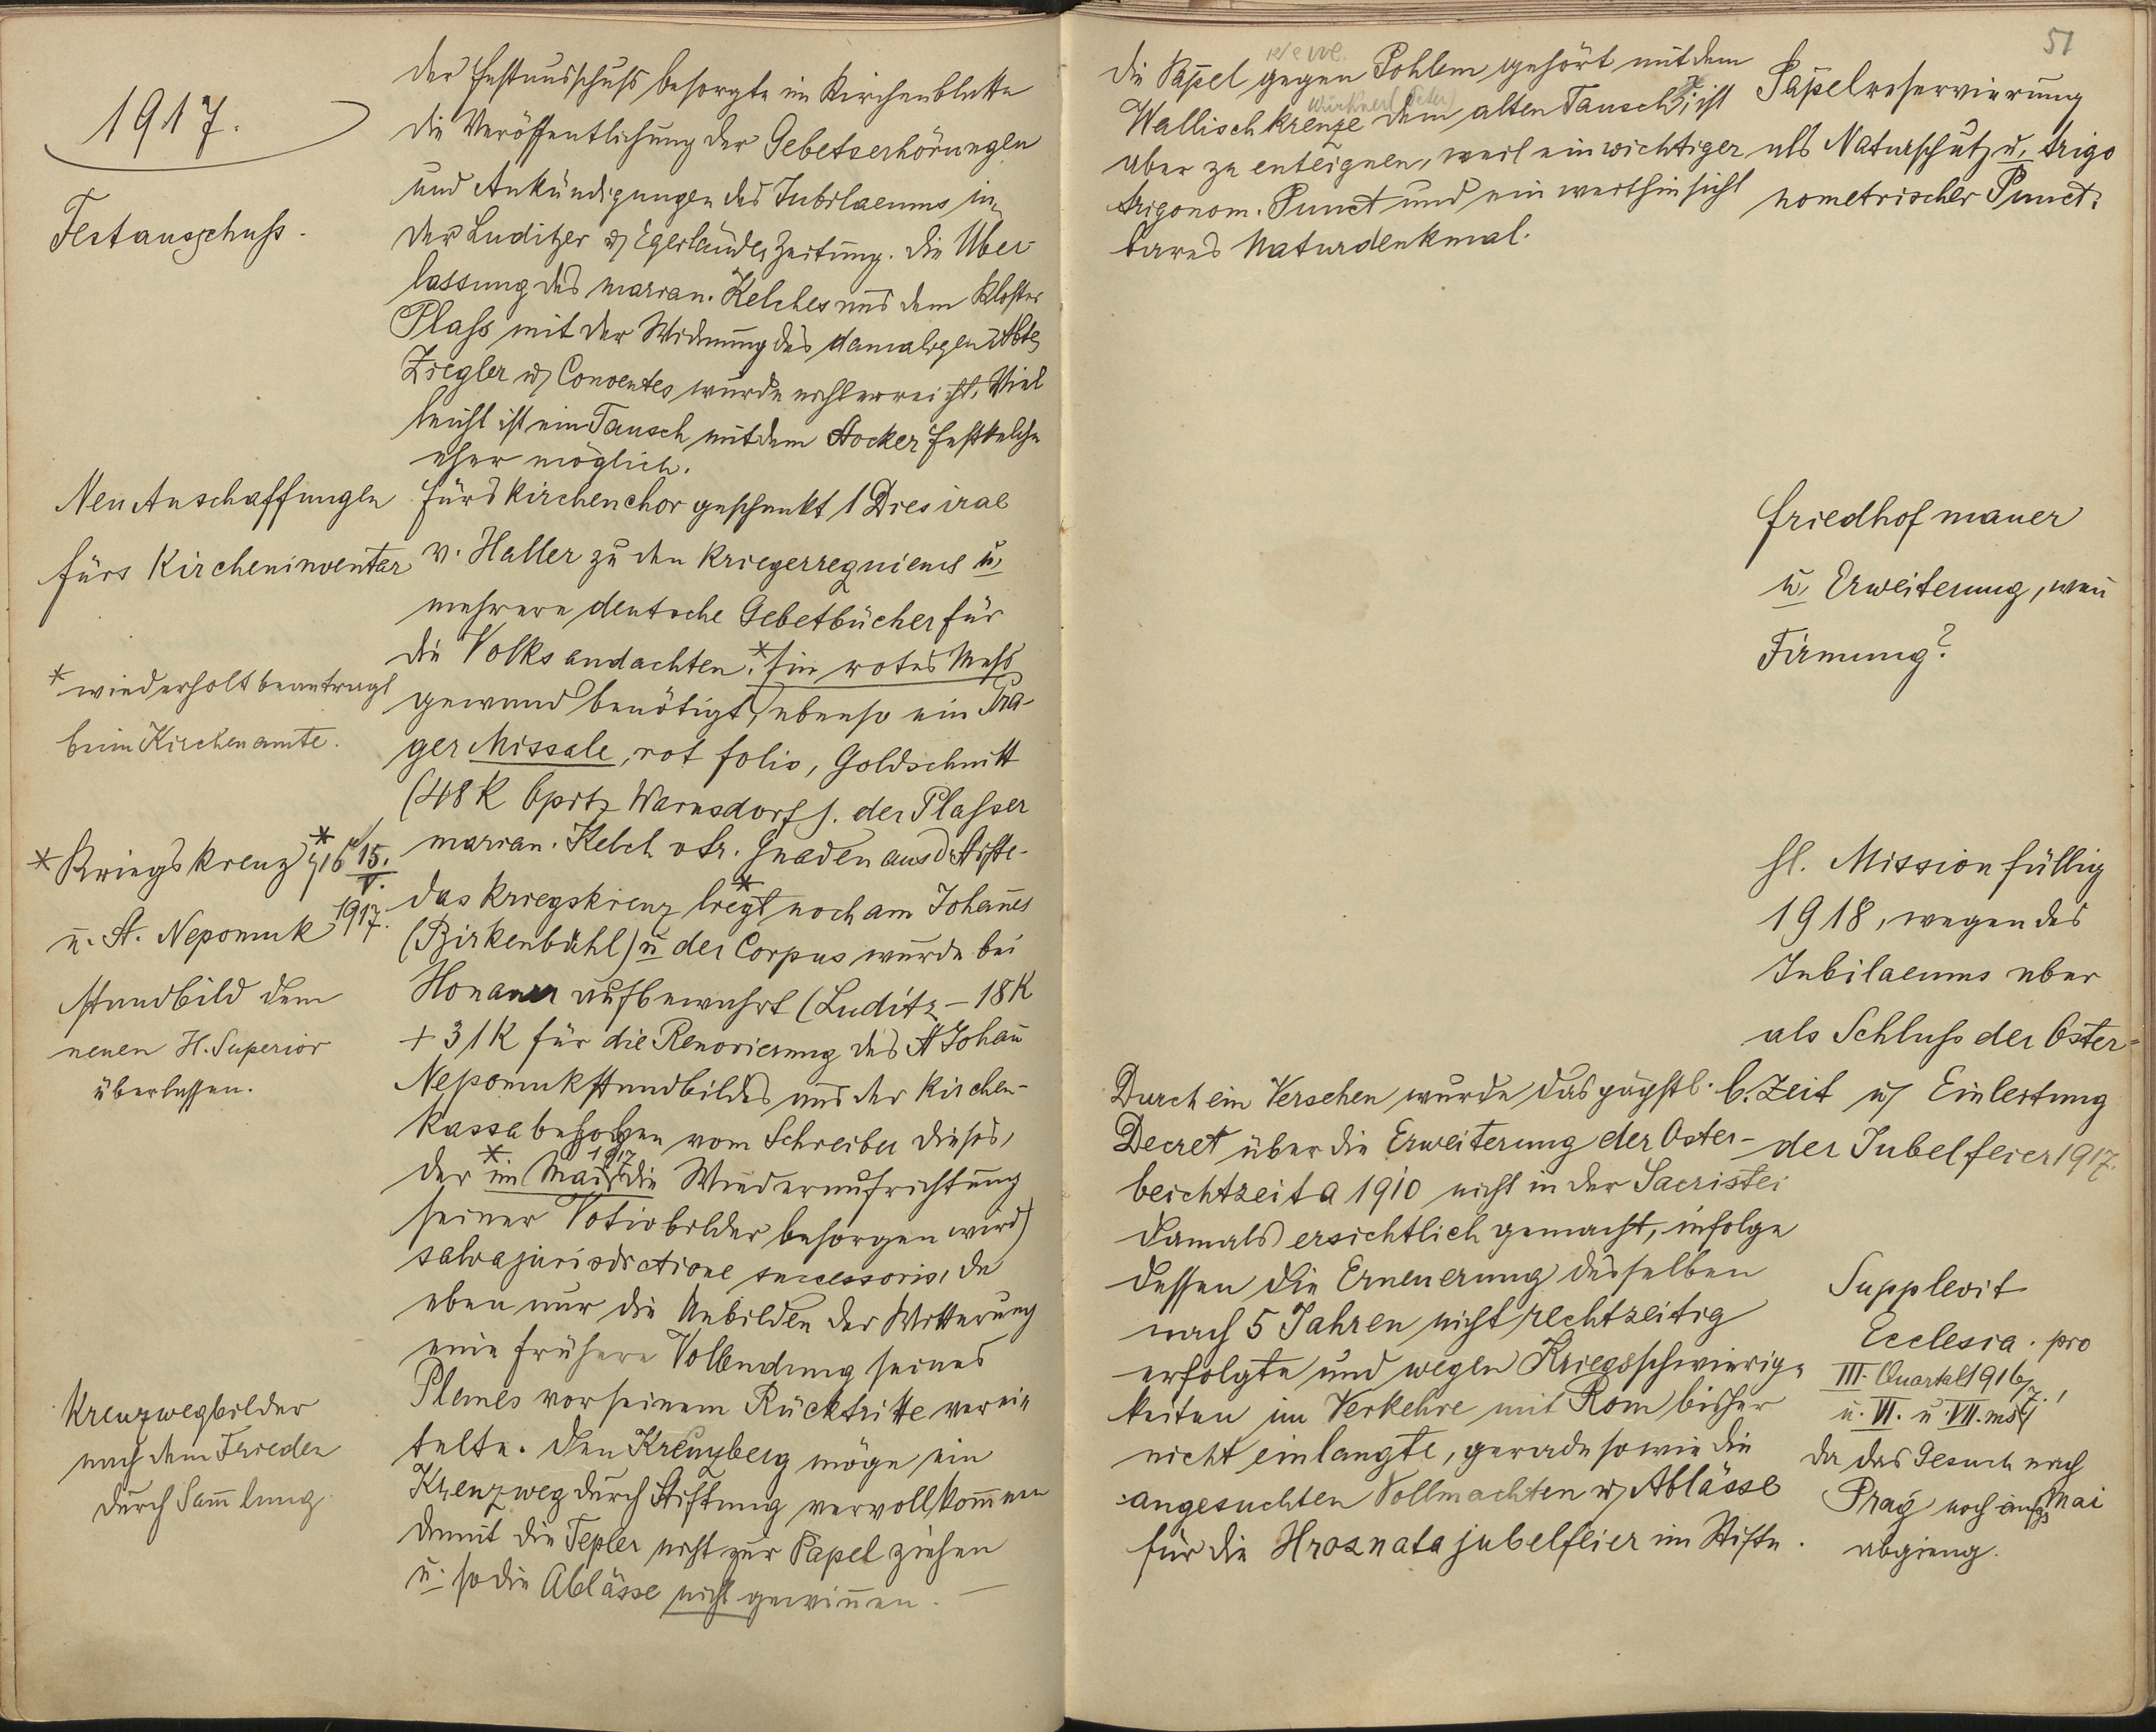 1917.
Festausschuss.
der Festausschuss besorgte im Kirchenblatte
die Veröffentlichung der Gebetserhörungen
und Ankündigungen des Jubilaeums in
der Luditzer u. Egerländer Zeitung. Die Über-
lassung des marian. Kelches aus dem Kloster
Plass mit der Widmung des damaligen Abtes
Ziegler u. Conventes wurde nicht erreicht. Viel
leicht ist ein Tausch mit dem Stocker Festkelche
eher möglich.
Neu Anschaffungen
fürs Kircheninventar
fürs Kirchenchor geschenkt 1 Dies irae
v. Haller zu den Kriegerrequiems u.
mehrere deutsche Gebetbücher für
die Volksandachten.* Ein rotes Mess
gewand benötigt, ebenso ein Pra-
ger Missale, rot folio, Goldschnitt
(48 K Opitz Warnsdorf). der Plasser
marian. Kelch v Sr. Gnaden aus d. Stifte.
* wiederholt beantragt
beim Kirchenamte.
* Kriegskreuz 15.
V.
1917.
u. St. Nepomuk
Standbild dem
neuen H. Superior
überlassen.
das Kriegskreuz liegt* noch am Johannes
(Birkenbühl) u der Corpus wurde bei
Honauer aufbewahrt (Luditz – 18 K
+ 31 K für die Renovierung des St Johann
Nepomukstandbildes aus der Kirchen-
kassa behoben vom Schreiber dieses,
der *im Mai 1917 die Wiederaufrichtung
seiner Votivbilder besorgen wird)
salva jurisdictione successoris, da
eben nur die Unbilden der Witterung
eine frühere Vollendung seines
Planes vor seinem Rücktritte verei-
telte. Den Kreuzberg möge ein
Kreuzweg durch Stiftung vervollkommnen
damit die Tepler nicht zur Papel ziehen
u. so die Ablässe nicht gewinnen. —
Kreuzwegbilder
nach dem Frieden
durch Sammlung
51
die Papel gegen Pohlem gehört mit dem
Wallischkreuze dem alten Tausch, ist
aber zu enteignen, weil ein wichtiger
trigonom. Punct und ein weithin sicht
bares Naturdenkmal.
Papelreservierung
als Naturschutz u. trigo
nometrischer Punct.
Friedhofmauer
u. Erweiterung, wann
Firmung?
hl. Mission fällig
1918, wegen des
Jubilaeums aber
als Schluss der Oster-
b. Zeit u. Einleitung
der Jubelfeier 1917.
Durch ein Versehen wurde das päpstl.
Decret über die Erweiterung der Oster-
beichtzeit a 1910 nicht in der Sacristei
damals ersichtlich gemacht, infolge
dessen die Erneuerung desselben
nach 5 Jahren nicht rechtzeitig
erfolgte und wegen Kriegsschwierig-
keiten im Verkehre mit Rom bisher
nicht einlangte, gerade so wie die
angesuchten Vollmachten u. Ablässe
für die Hroznatajubelfeier im Stifte.
Supplevit
Ecclesia. pro
III. Quartal 1916/7.!
u. VI. u. VII. ms
da das Gesuch nach
Prag noch anfgs Mai
abgieng.